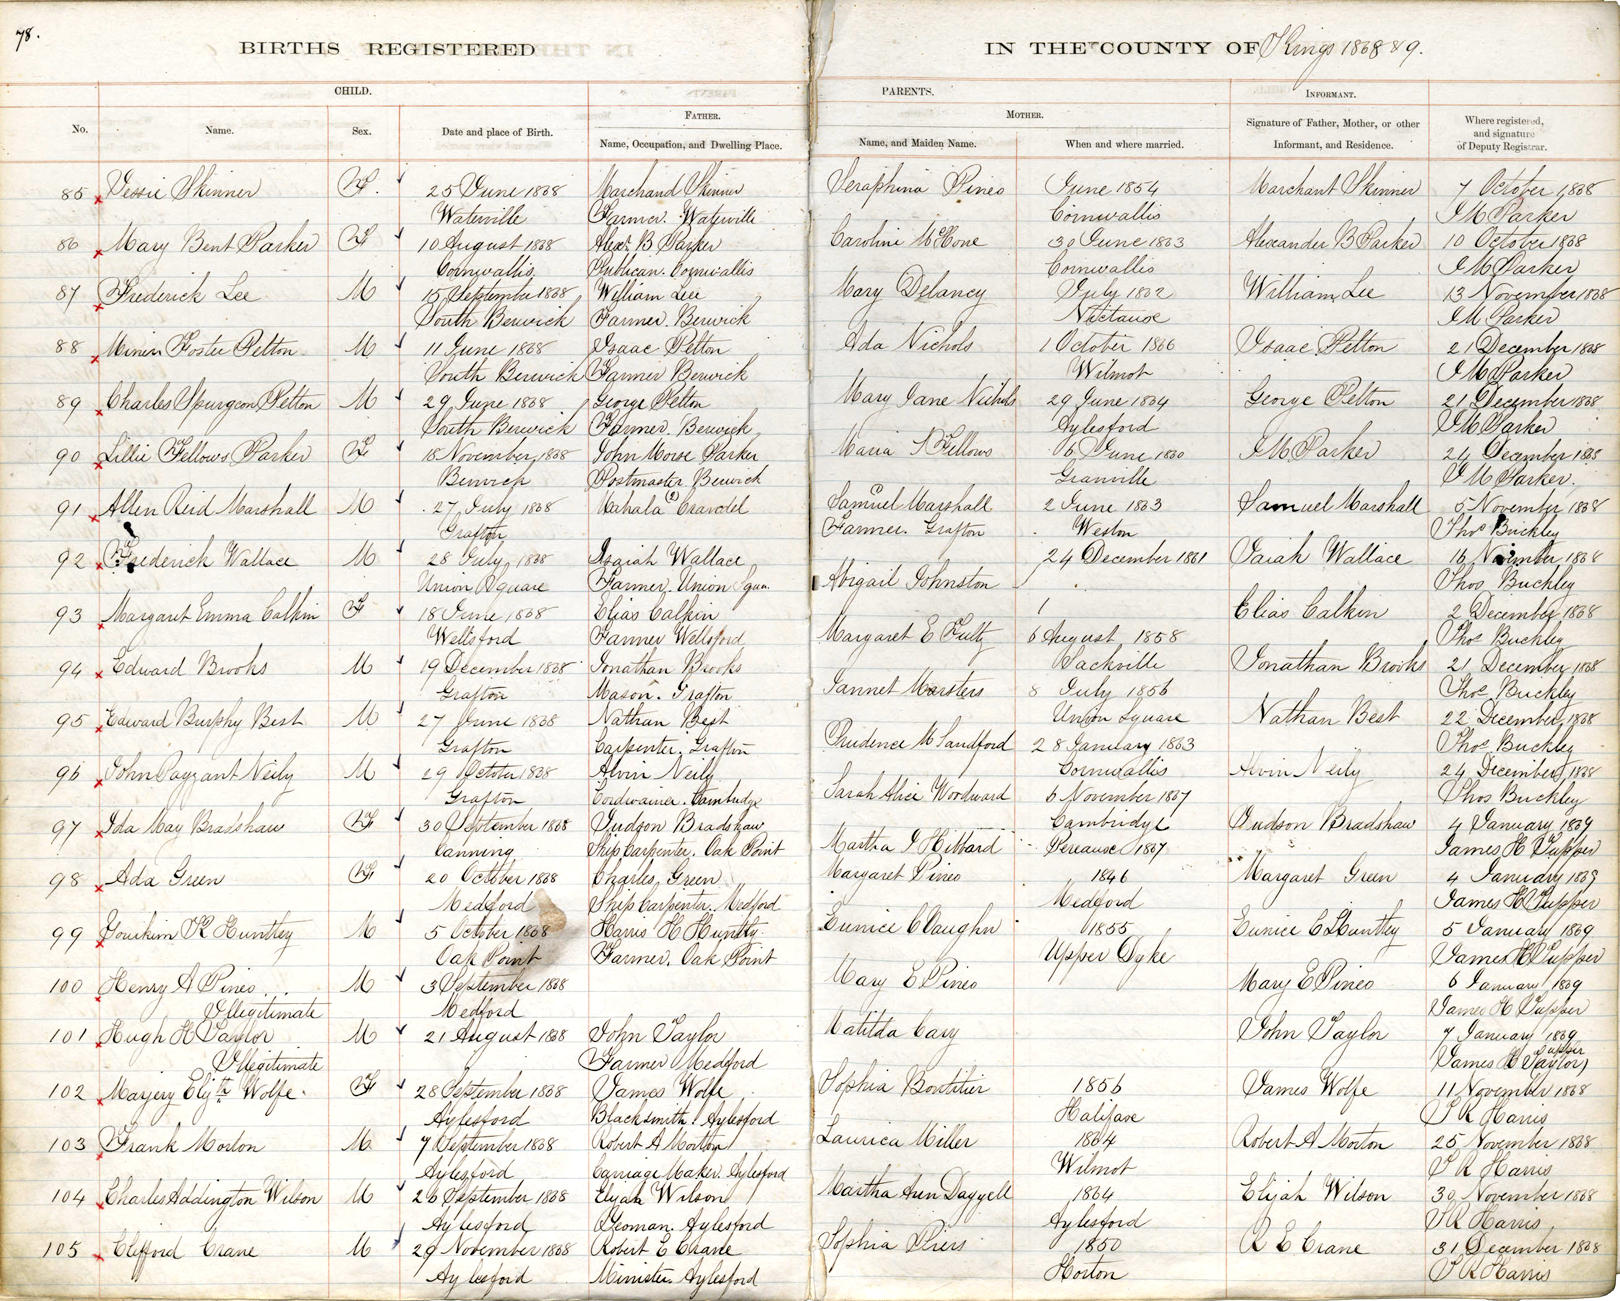 78.
BIRTHS REGISTERED
IN THE COUNTY OF Kings 1868 & 9.
CHILD.
PARENTS.
INFORMANT.
No.
Name.
Sex.
Date and place of Birth.
FATHER.
Name, Occupation, and Dwelling Place.
MOTHER.
Name, and Maiden Name.
When and where married.
Signature of Father, Mother, or other
Informant, and Residence.
Where registered,
and signature
of Deputy Registrar.
85 Jessie Skinner F. 25 June 1868 Marchand Skinner Seraphina Pineo June 1854 Marchant Skinner 7 October 1868
Waterville Farmer. Waterville Cornwallis J M Parker
86 Mary Bent Parker F 10 August 1868 Alexr. B Parker Caroline McKone 30 June 1863 Alexander B Parker 10 October 1868
Cornwallis Publican. Cornwallis Cornwallis J M Parker
87 Frederick Lee M 15 September 1868 William Lee Mary Delancy July 1862 William Lee 13 November 1868
South Berwick Farmer. Berwick Nictaux J M Parker
88 Miner Foster Pelton M 11 June 1868 Isaac Pelton Ada Nichols 1 October 1866 Isaac Pelton 21 December 1868
South Berwick Farmer Berwick Wilmot J M Parker
89 Charles Spurgeon Pelton M 29 June 1868 George Pelton Mary Jane Nichols 29 June 1864 George Pelton 21 December 1868
South Berwick Farmer. Berwick Aylesford J M Parker
90 Lillie Fellows Parker F 18 November 1868 John Morse Parker Maria Fellows 6 June 1860 J M Parker 24 December 1868
Berwick Postmaster Berwick Granville J M Parker.
91 Allen Reid Marshall M 27 July 1868 Mahala Crandel Samuel Marshall 2 June 1863 Samuel Marshall 5 November 1868
Grafton Farmer. Grafton Weston Thos Buckley
92 Frederick Wallace M 28 July 1868 Isaiah Wallace 24 December 1861 Isaiah Wallace 16 November 1868
Union Square Farmer. Union Squa. Abigail Johnston Thos Buckley
93 Margaret Emma Calkin F 18 June 1868 Elias Calkin Elias Calkin 2 December 1868
Wellsford Farmer Wellsford Margaret E Fultz 6 August 1858 Thos Buckley
94 Edward Brooks M 19 December 1868 Jonathan Brooks Sackville Jonathan Brooks 21 December 1868
Grafton Mason. Grafton Jannet Marsters 8 July 1856 Thos Buckley
95 Edward Burphy Best M 27 June 1868 Nathan Best Union Square Nathan Best 22 December 1868
Grafton Carpenter. Grafton Prudence M Sandford 28 January 1863 Thos Buckley
96 John Payzant Neily M 29 October 1868 Alvin Neily Cornwallis Alvin Neily 24 December 1868
Grafton Cordwainer. Cambridge Sarah Alice Woodward 6 November 1867 Thos Buckley
97 Ida May Bradshaw F 30 September 1868 Judson Bradshaw Cambridge Judson Bradshaw 4 January 1869
Canning Ship Carpenter. Oak Point Martha J Hibbard Pereaux 1867 James H Tupper
98 Ada Green F 20 October 1868 Charles Green Margaret Pineo 1846 Margaret Green 4 January 1869
Medford Ship Carpenter. Medford Medford James H Tupper
99 M 5 October 1868 Harris H Huntly. Eunice C Vaughn 1855 Eunice C Huntley 5 January 1869
Oak Point Farmer. Oak Point Upper Dyke James H Tupper
100 Henry A Pineo M 3 September 1868 Mary E Pineo Mary E Pineo 6 January 1869
Illegitimate Medford James H Tupper
101 Hugh H Taylor M 21 August 1868 John Taylor Matilda Cary John Taylor 7 January 1869
Illegitimate Farmer Medford James H Taylor Tupper
102 Marjery Elizth Wolfe. F 28 September 1868 James Wolfe Sophia Boutilier 1856 James Wolfe 11 November 1868
Aylesford Blacksmith. Aylesford Halifax T R Harris
103 Frank Morton M 7 September 1868 Robert A Morton Laurica Miller 1864 Robert A Morton 25 November 1868
Aylesford Carriage Maker. Aylesford Wilmot T R Harris
104 Charles Addington Wilson M 26 September 1868 Elijah Wilson Martha Ann Daggell 1864 Elijah Wilson 30 November 1868
Aylesford Yeoman. Aylesford Aylesford T R Harris
105 Clifford Crane M 29 November 1868 Robert E Crane Sophia Piers 1850 R E Crane 31 December 1868
Aylesford Minister. Aylesford Horton T R Harris